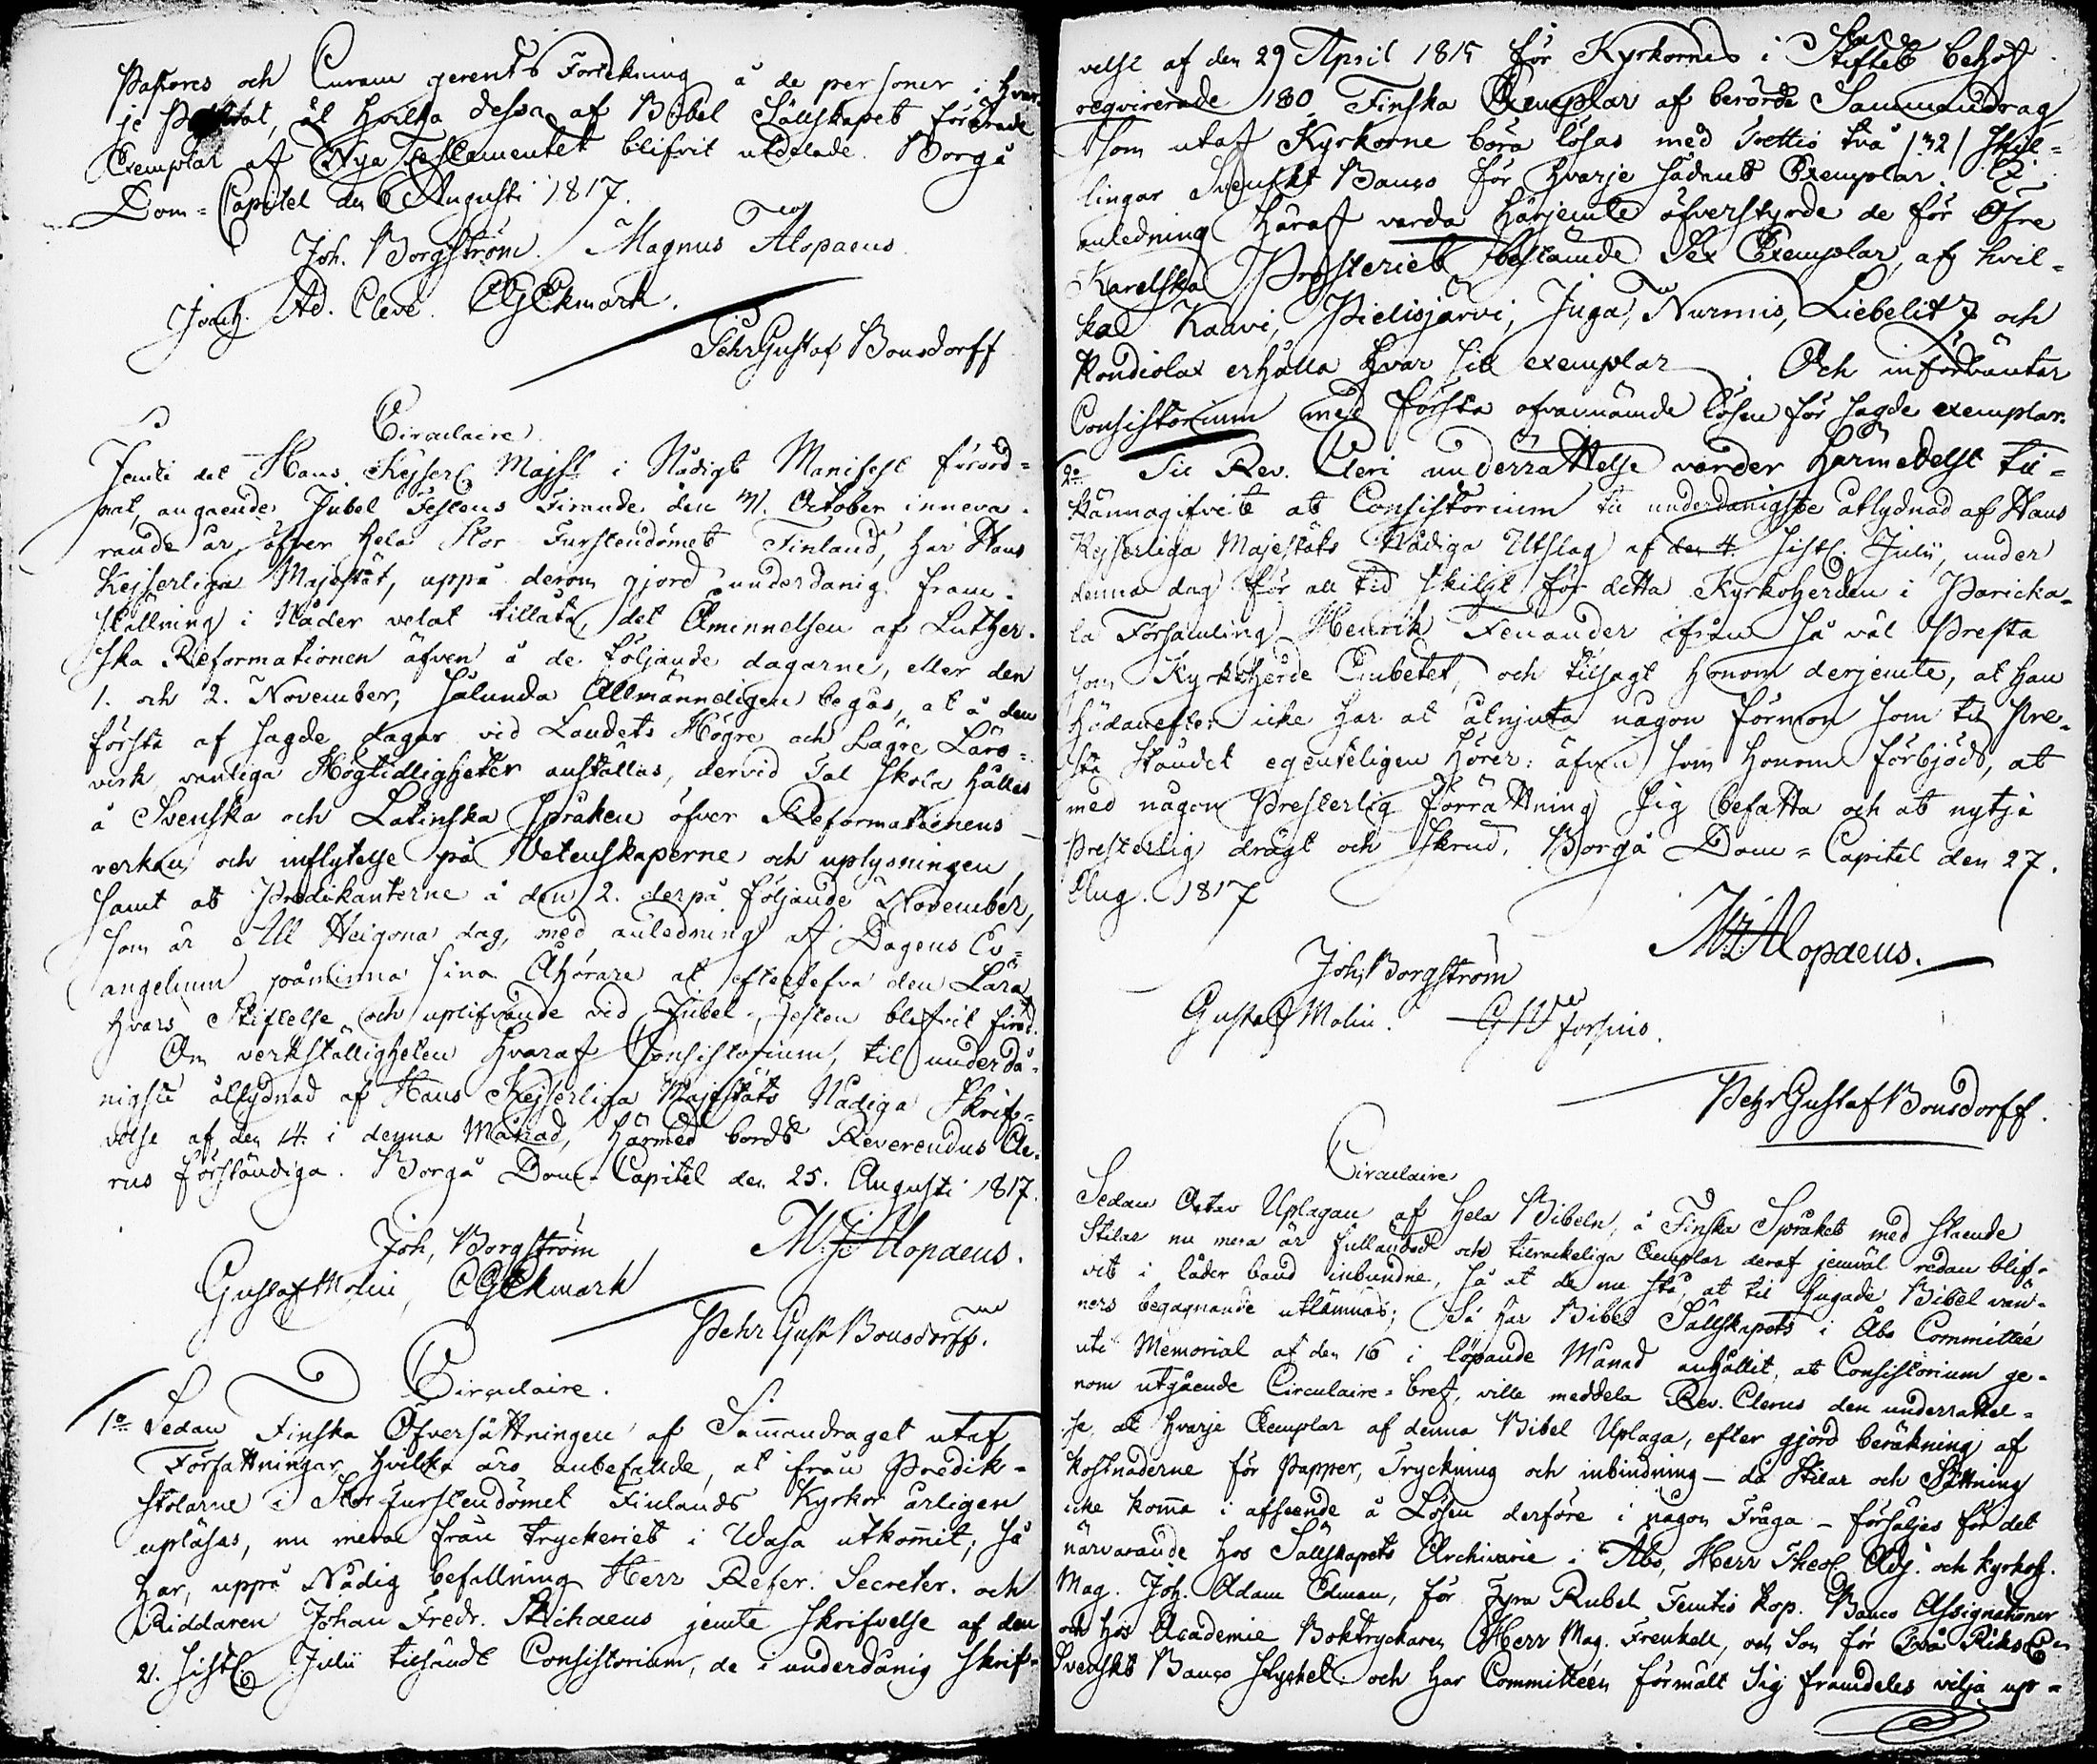 Pastores och Curam gerents Förtekning å de personer i hvar-
je Pastorat, åt hvilka dessa af Bibel Sällskapet förärade
Exemplar af Nya Testamentet blifvit utdelade. Borgå
Dom-Capitel den 6 Augusti 1817.
Joh. Borgström. Magnus Alopaeus
Joach. Ad. Cleve. C G Ekmark.
Pehr Gustaf Bonsdorff
Circulaire
Jemte det Hans Kejserl. Majst i Nådigt Manifest förord-
nat, angaende Jubel Festens Firande den 31. October inneva-
rande år öfver hela Stor Furstendömet Finland, har Hans
Kejserliga Majestät, uppå derom gjord underdånig fram-
ställning i Nåder velat tillåta, det Åminnelsen af Luther-
ska Reformationen äfven å de följande dagarne, eller den
1. och 2. November, sålunda Allmänneligen begås, at å den
första af sagde dagar vid Landets Högre och Lägre Läro-
verk vanliga Högtidligheter anställas, dervid Tal skola hållas
å Svenska och Latinska språken öfver Reformationens
verkan och inflytelse på Vetenskaperne och uplysningen,
samt at Predikanterne å den 2. derpå följande November,
som är All Helgona dag, med anledning af Dagens Ev-
angelium påminna sina Åhörare at efterlefva den Lära,
hvars Stiftelse och uplifvande vid Jubel-Festen blifvit firad.
Om verkställigheten hvaraf Consistorium, til underdå-
nigste åtlydnad af Hans Kejserliga Majestäts Nådiga Skrif-
velse af den 14 i denna Månad, härmed bordt Reverendus Cle-
rus förständiga. Borgå Dom-Capitel den 25. Augusti 1817.
Joh. Borgström M: Alopaeus.
Gustaf Molin, C G Ekmark
Pehr Gust Bonsdorff.
Circulaire.
1o Sedan Finska Öfversättningen af Sammandraget utaf
Författningar, hvilka äro anbefallde, at ifrån Predik-
stolarne i Stor Furstendömet Finlands Kyrkor årligen
upläsas, nu mera från tryckeriet i Wasa utkommit; så
har, uppå Nådig befallning Herr Refer. Secreter. och
Riddaren Johan Fredr. Stichaeus jemte skrifvelse af den
21. sistl. Julii tilsändt Consistorium, de i underdånig skrif-
velse af den 29 April 1815 för Kyrkornes i Stiftet behof
reqvirerade 180 Finska Exemplar af berörde Sammandrag
som utaf Kyrkorne böra lösas med Trettio två /32/ skil-
lingar Svenskt Banco för hvarje sådant Exemplar. I
anledning häraf varda härjemte öfverstyrde de för Öfre
Karelska Prosteriet bestämde Sex Exemplar, af hvil-
ka Kaavi, Pielisjärvi, Juga, Nurmis, Liebelitz och
Kondiolax erhålla hvar sitt exemplar. Och införväntar
Consistorium med första ofvannämde lösen för sagde exemplar.
2o Til Rev. Cleri underrättelse varder härmedelst til-
kännagifvit at Consistorium til underdånigste åtlydnad af Hans
Kejserliga Majestäts Nådiga Utslag af den 4. sistl. Julii, under
denna dag för all tid skiljt för detta Kyrkoherden i Paricka-
la Församling Henrik Fenander ifrån så väl Presta
som Kyrkoherde Embetet, och tilsagt honom derjemte, at han
hädanefter icke har at åtnjuta någon förmon som til Pre-
sta ståndet egenteligen hörer: äfven som honom förbjöds, at
med någon Presterlig förrättning sig befatta och at nytja
Presterlig drägt och skrud. Borgå Dom-Capitel den 27.
Aug. 1817
M: Alopaeus.
Joh. Borgström
Gustaf Molin.
Pehr Gustaf Bonsdorff.
Circulaire
Sedan Octav Uplagan af hela Bibeln, å Finska Språket med stående
Stilar nu mera är fullandad och tilräckeliga Exemplar deraf jemväl redan blif-
vit i läder band inbundne, så at de nu stå, at til hugade Bibel vän-
ners begagnande utlämnas; Så har Bibel Sällskapets i Åbo Committée
uti Memorial af den 16 i löpande Månad anhållit, at Consistorium ge-
nom utgående Circulaire-bref, ville meddela Rev. Clerus den underrättel-
se, at hvarje Exemplar af denna Bibel Uplaga, efter gjord beräkning af
kostnaderne för Papper, Tryckning och inbindning – då Stilar och Sättning
icke komma i afseende å Lösen derföre i någon Fråga – försäljes för det
närvarande hos Sällskapets Archivarie i Åbo, Herr Theol. Adj. och Kyrkoh.
Mag. Joh. Adam Edman, för Fyra Rubel Femtio Kop. Banco Assignationer
och hos Academie Boktryckaren Herr Mag. Frenkell, och Son för Två Riksd
Svenskt Banco stycket. och har Committéen förmält Sig framdeles vilja upr-